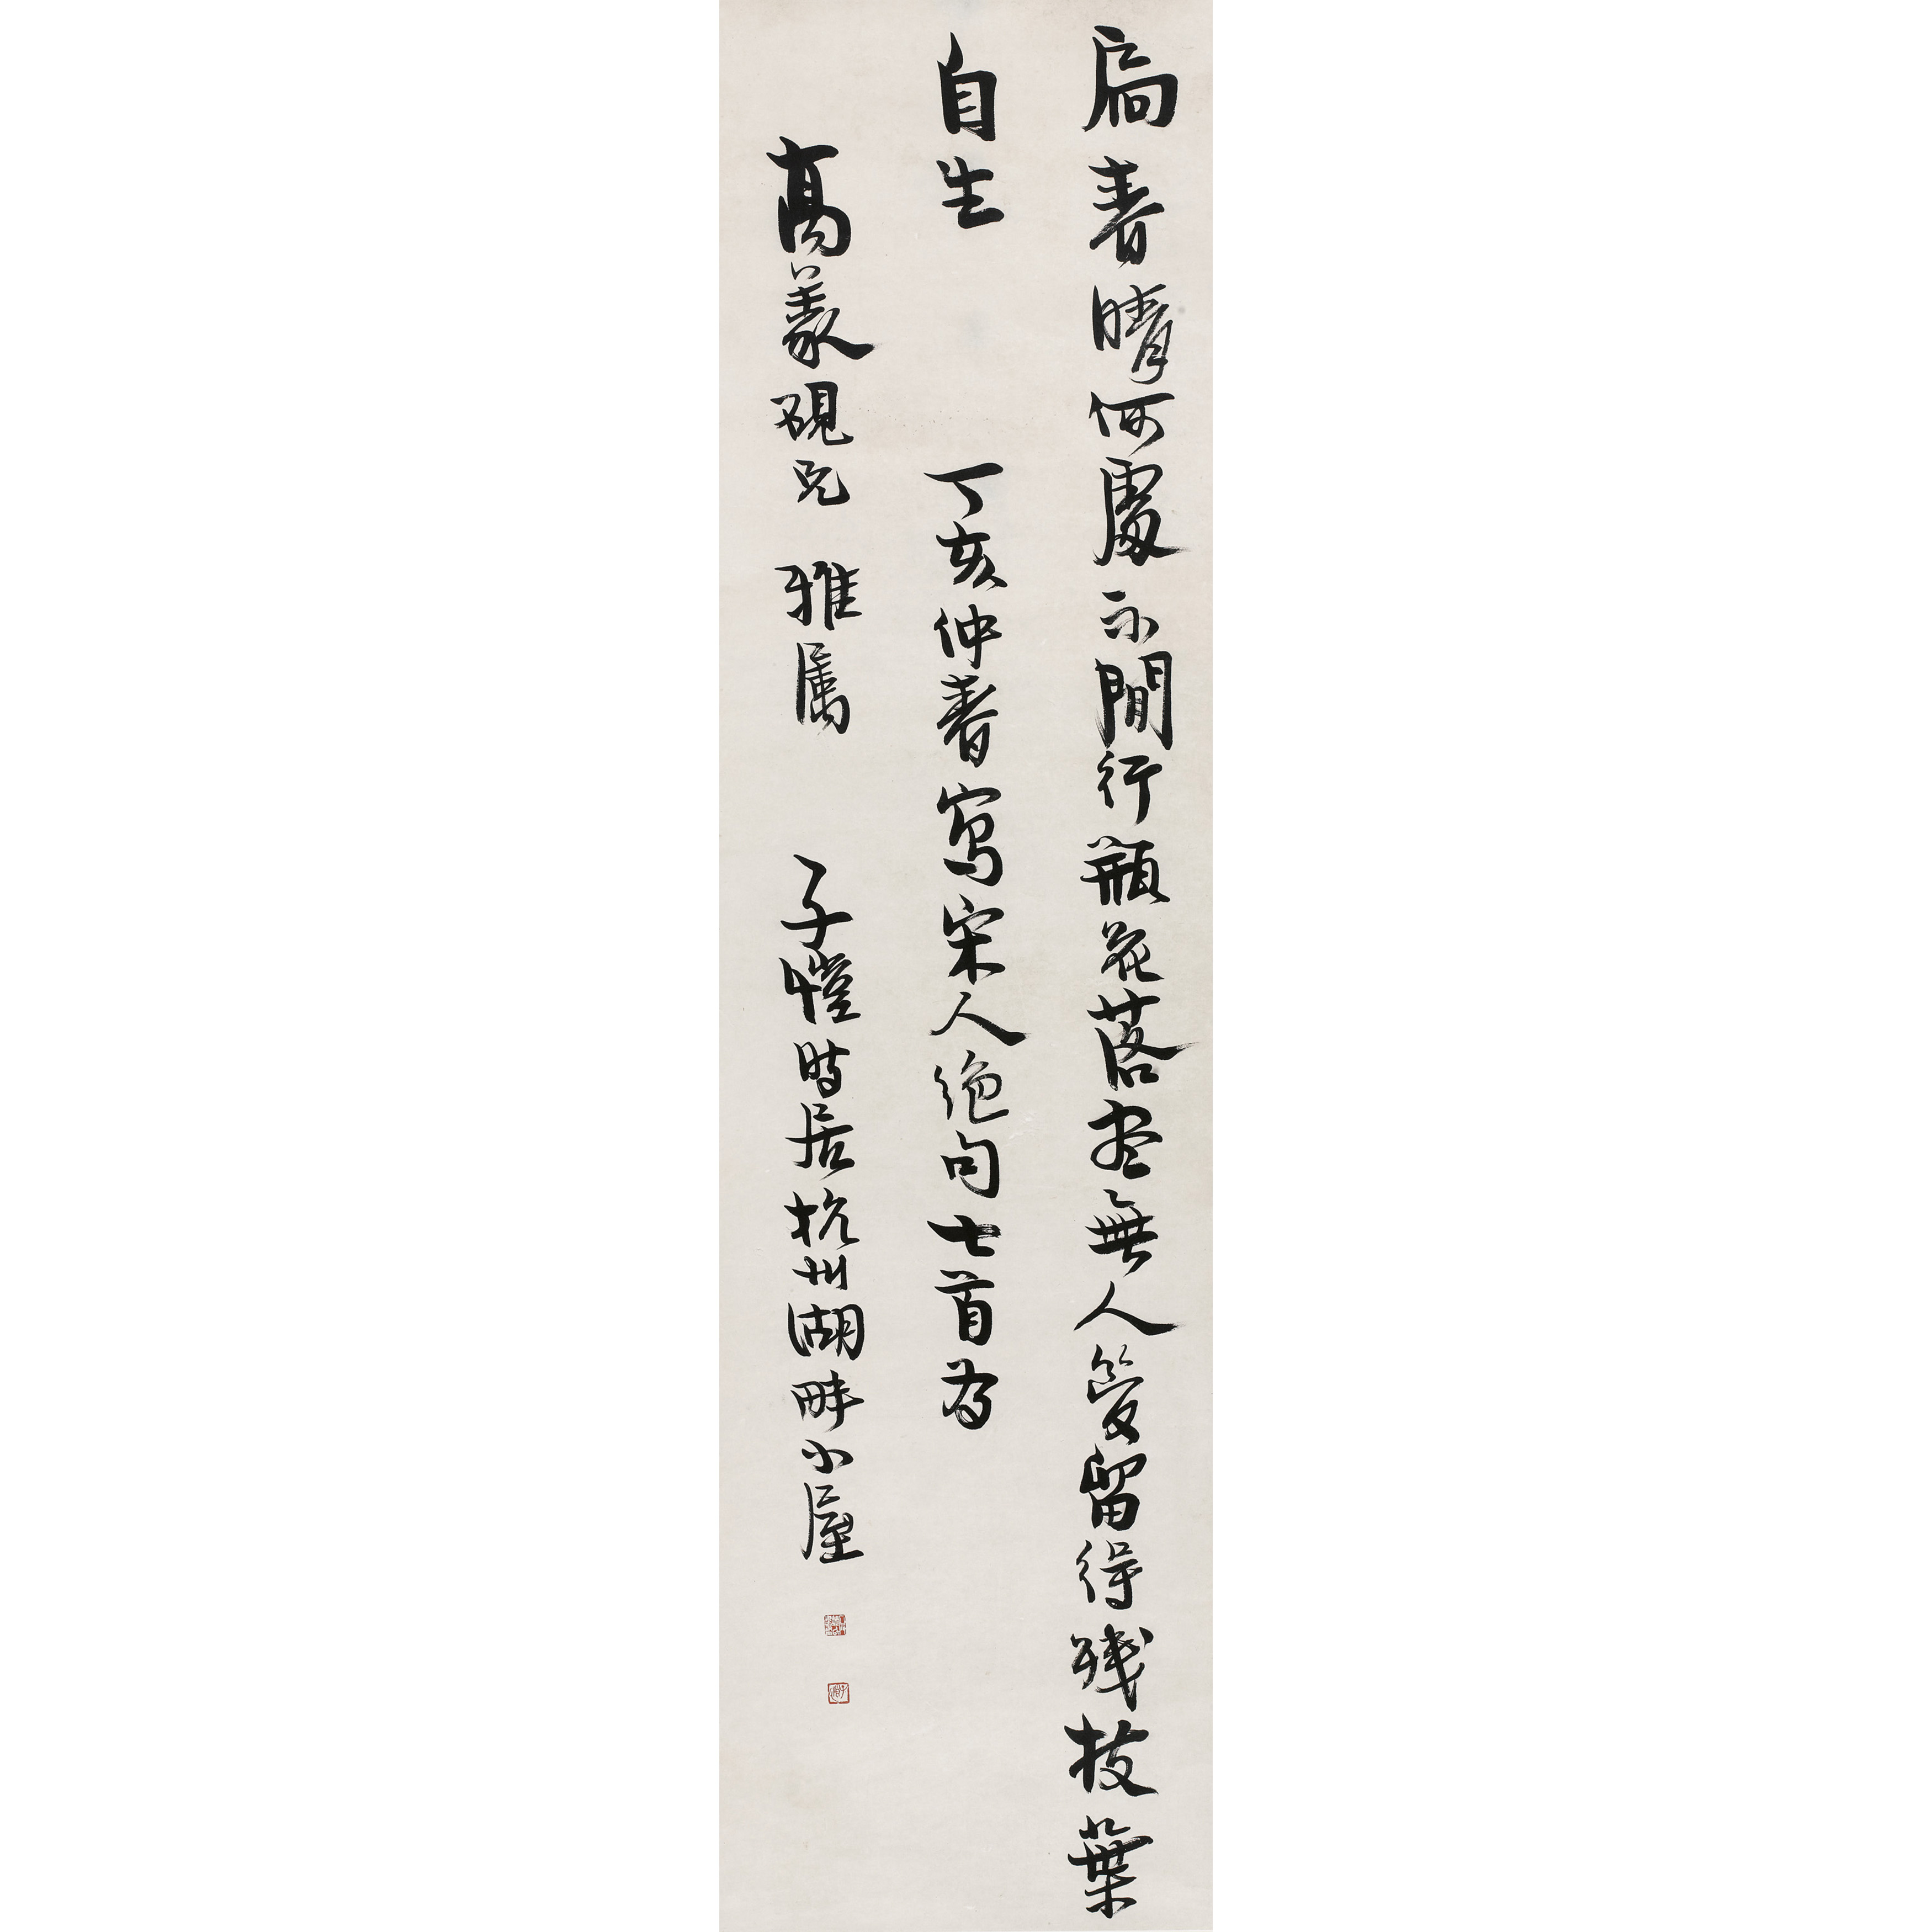 扄春晴何處不閒行瓶花落盡無人管留得殘枝葉
自生 丁亥仲春寫宋人絕句七首為
高義硯兄 雅屬 子愷時居杭州湖畔小屋